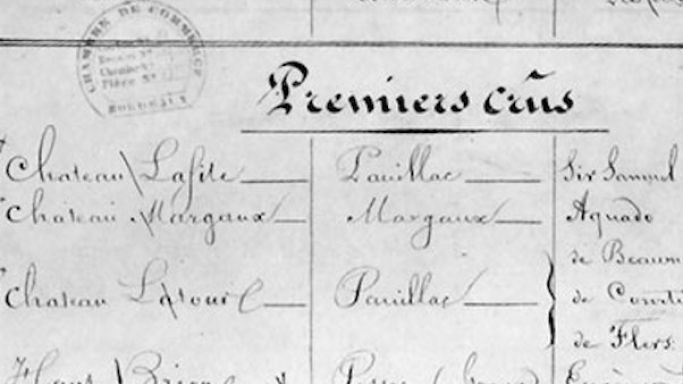 CHAMBRE DE COMMERCE
BORDEAUX
Premiers crûs
Chateau Lafite Pauillac Sir Samuel
Chateau Margaux Margaux Aguado
de Beaum
Chateau Latour Pauillac de Courti
de Flers
Haut Brion Pessac